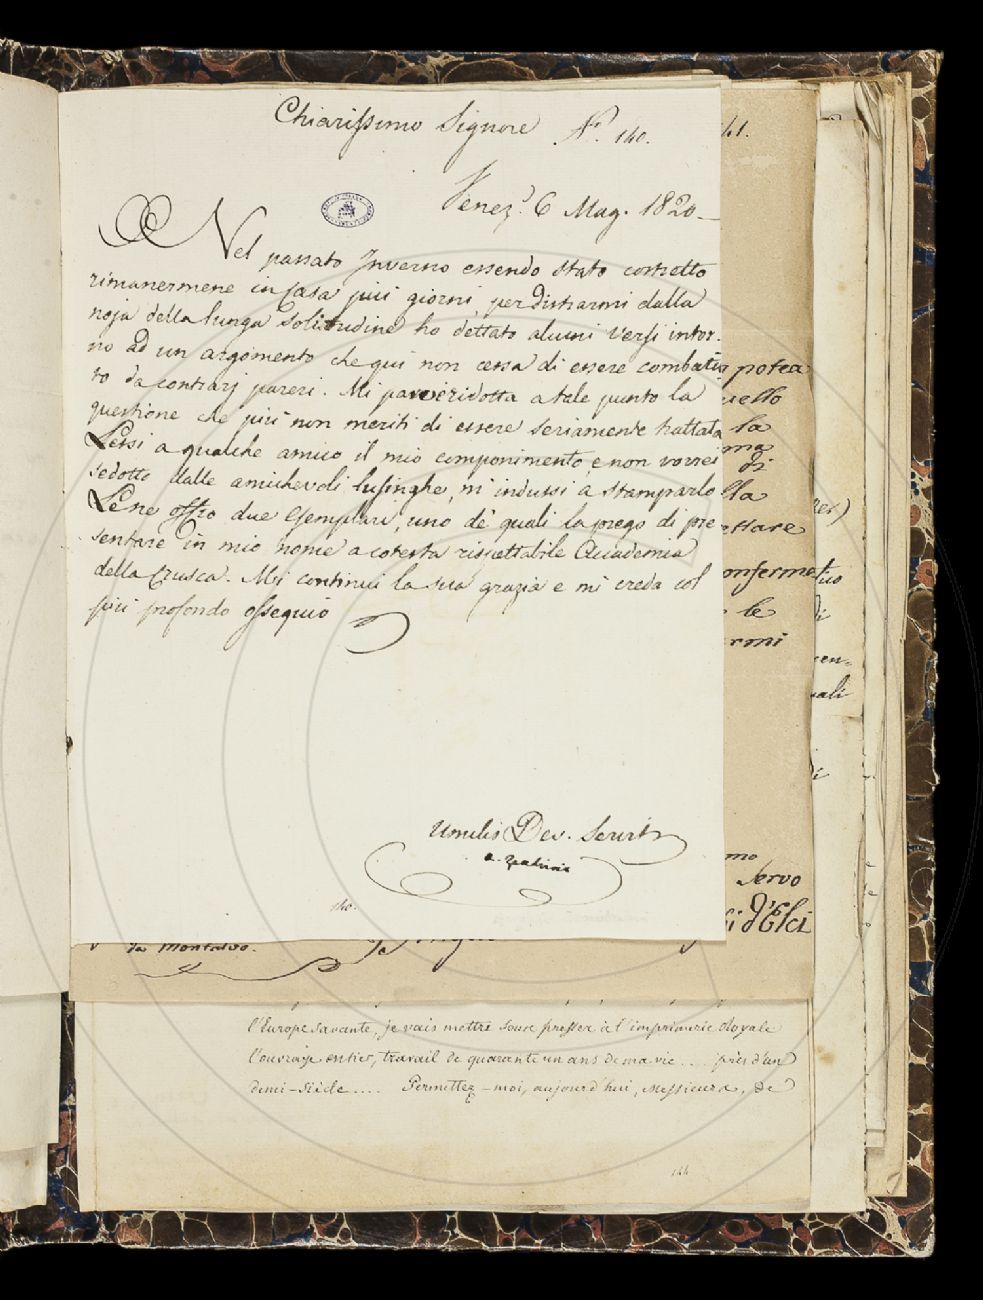 Chiarissimo Signore N.° 140.
41.
Venez.ª 6 Mag. 1820
Nel passato Inverno essendo stato costretto
rimanermene in Casa più giorni, per distrarmi dalla
noja della lunga solitudine ho dettato alcuni Versi intor-
no ad un argomento che qui non cessa di essere combatu-
to da contrarj pareri. Mi parve ridotta a tale punto la
questione che più non meriti di essere seriamente trattata
Lessi a qualche amico il mio componimento, e non vorrei
sedotto dalle amichevoli lusinghe, m'indussi a stamparlo
Le ne offro due Esemplari, uno de' quali la prego di pre
sentare in mio nome a cotesta rispettabile Accademia
della Crusca. Mi continui la sua grazia e mi creda col
più profondo ossequio
potea
uello
la
ma
di
lla
ettare
onferma
le
ermi
tuo
di
cen-
uali
di
Umilis Dev. Servit
140.
mo
Servo
d'Elci
da Montalvo.
l'Europe savante, je vais mettre sous presses à l'imprimerie Royale
l'ouvrage entier, travail de quarante un ans de ma vie.... près d'un
demi-siècle.... Permettez-moi, aujourd'hui, Messieurs, de
144